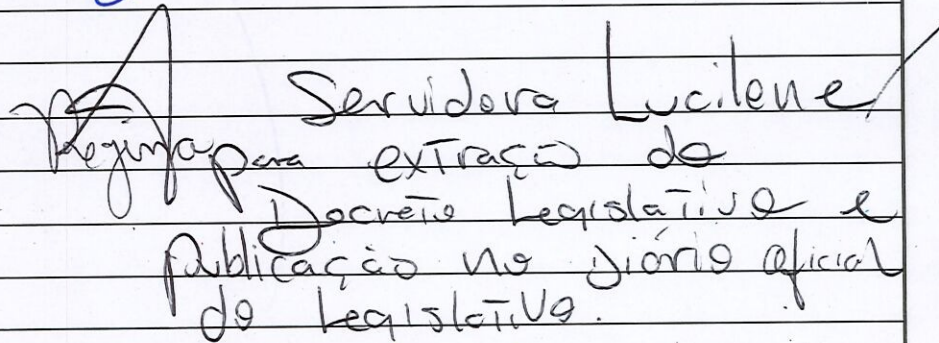 A Servidora Lucilene
Regina para extração do
Decreto Legislativo e
publicação no Diário oficial
do Legislativo.